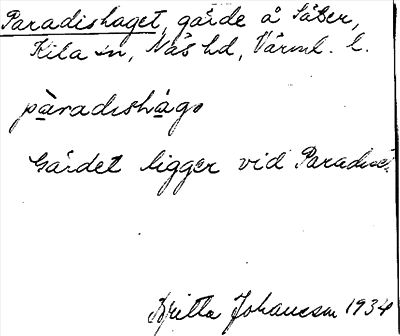 Paradishaget, gärde å Säter,
Kila sn, Näs hd, Värml. l.
paradishago
Gärdet ligger vid Paradiset.
Britta Johansson 1934